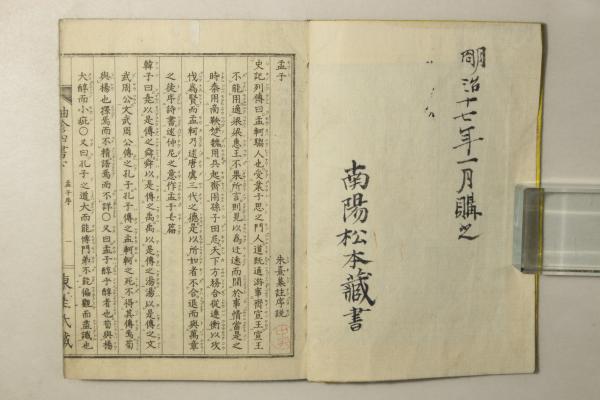 明治十七年一月購之
南陽松本藏書
孟子
朱熹集註序説
史記列傳曰孟軻騶人也受業子思之門人道既通游事齊宣王宣王
不能用適梁梁惠王不果所言則見以為迂遠而闊於事情當是之
時秦用商鞅楚魏用呉起齊用孫子田忌天下方務合從連衡以攻
伐為賢而孟軻乃述唐虞三代之德是以所如者不合退而與萬章
之徒序詩書述仲尼之意作孟子七篇
韓子曰堯以是傳之舜舜以是傳之禹禹以是傳之湯湯以是傳之文
武周公文武周公傳之孔子孔子傳之孟軻軻之死不得其傳焉荀
與楊也擇焉而不精語焉而不詳〇又曰孟子醇乎醇者也荀與楊
大醇而小疵〇又曰孔子之道大而能博門弟不能徧觀而盡識也
孟子序